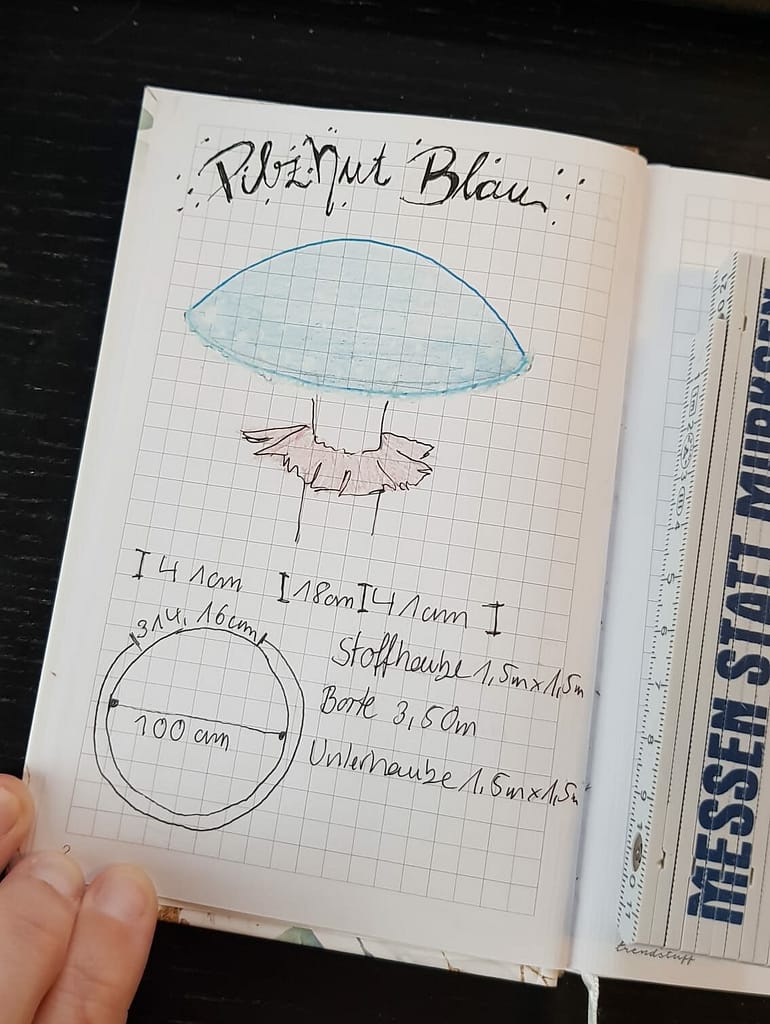 Pilz Hut Blau
I 41cm I 18cm I 41cm I
314,16cm
100 cm
Stoffhaube 1,5m x 1,5m
Borte 3,50m
Unterhaube 1,5m x 1,5m
2
MESSEN STATT MURKSEN
trendstuff